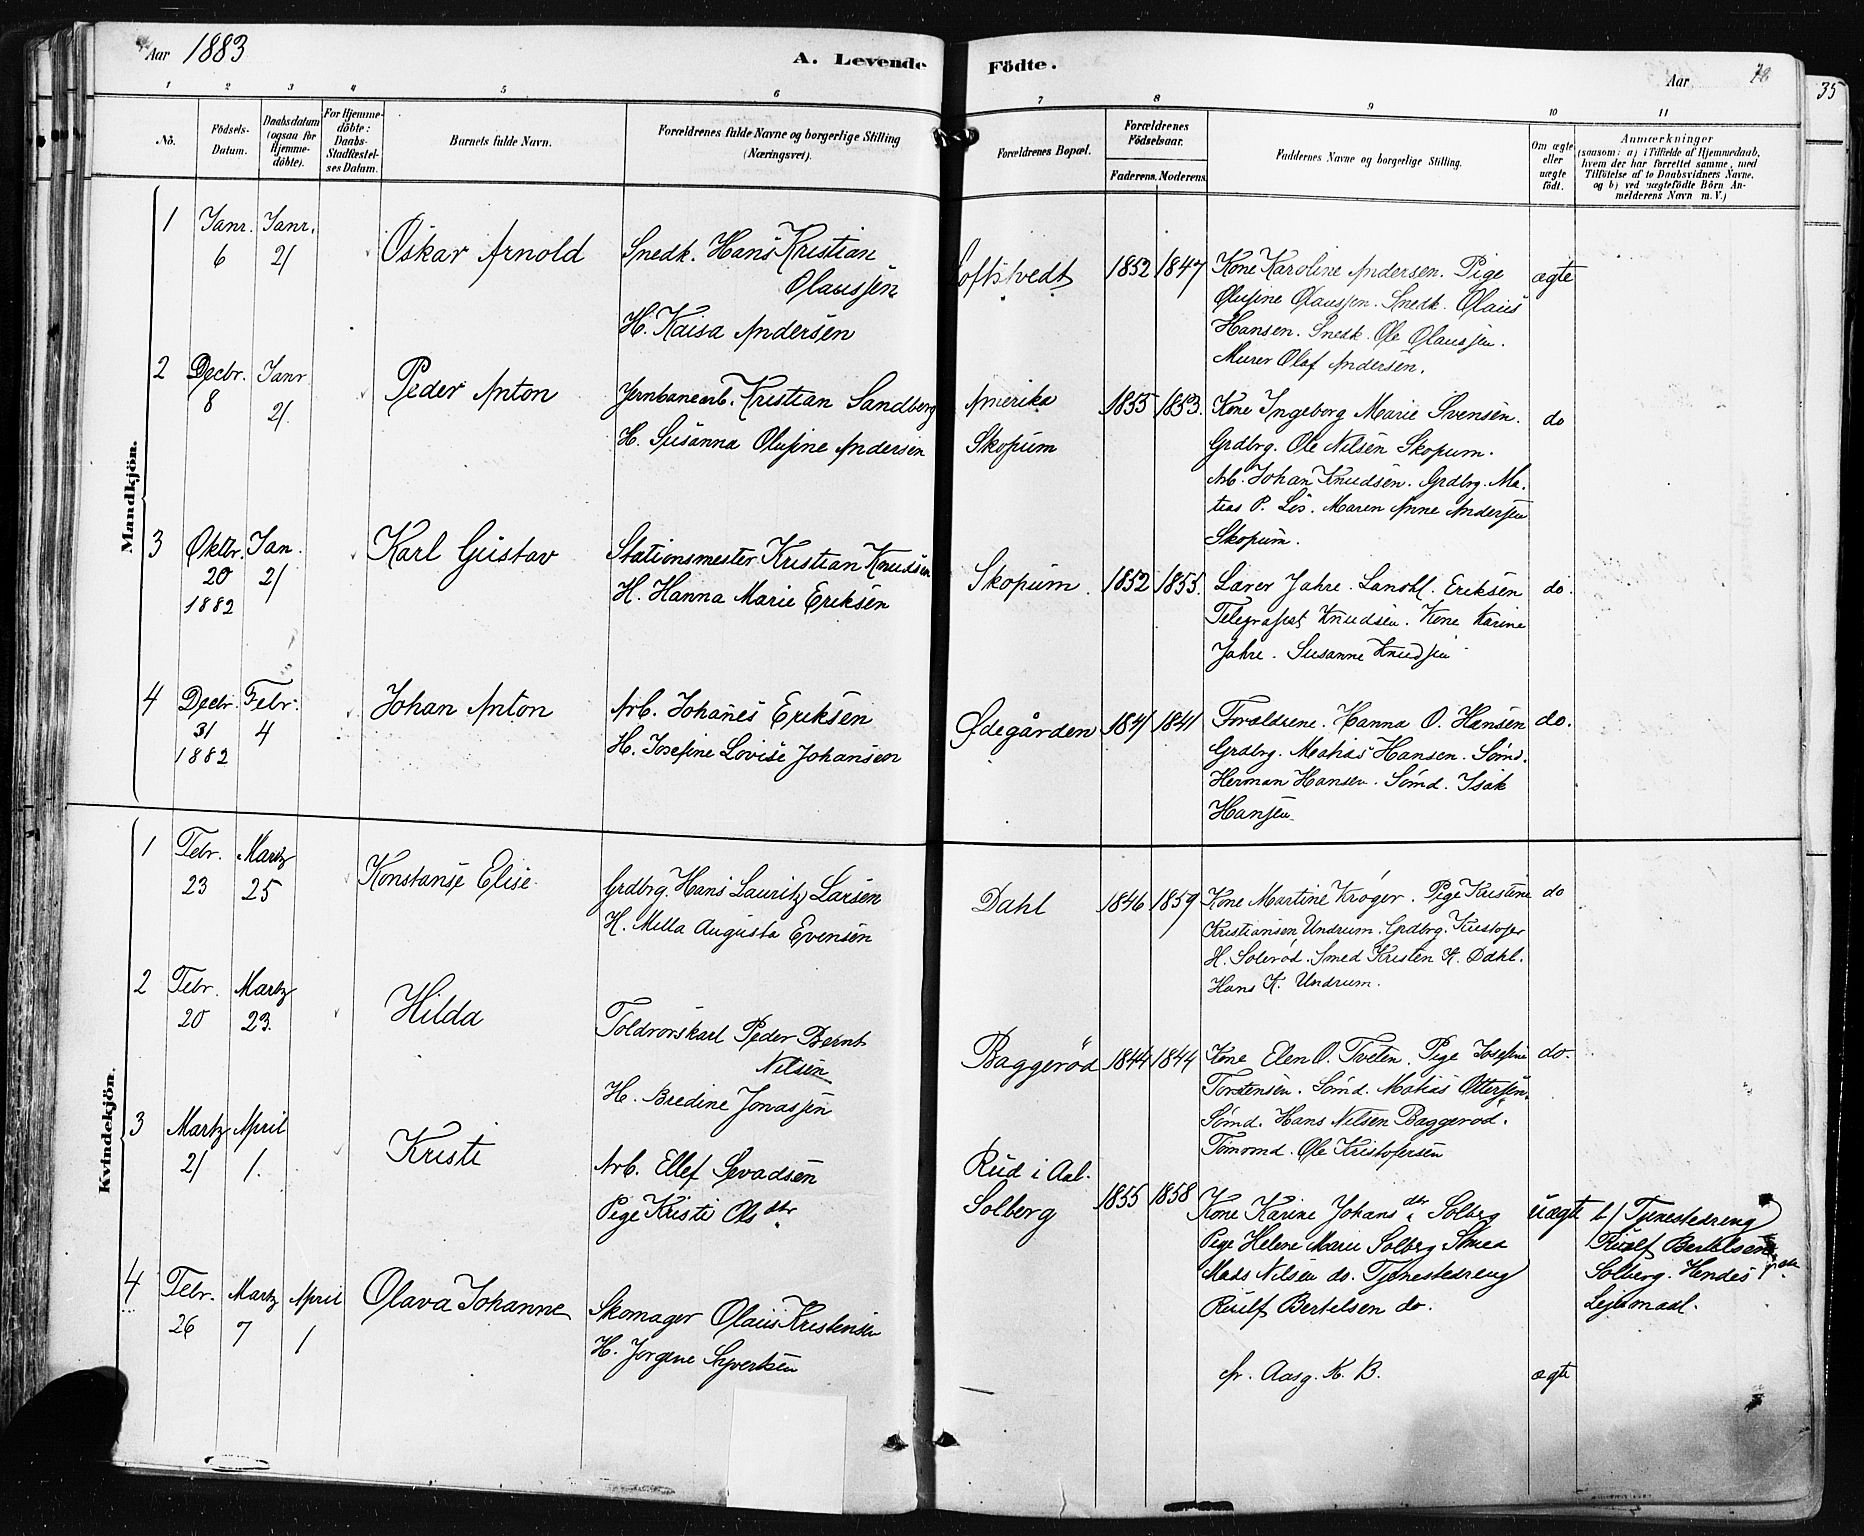 Aar 1883
A. Levende Fødte.
Aar
35
1 2 3 4 5 6 7 8 9 10 11
No.
Födsels-Datum.
Daabsdatum (ogsaa for Hjemme-döbte).
For Hjemme-döbte: Daabs-Stadfæstel-ses Datum.
Barnets fulde Navn.
Forældrenes fulde Navne og borgerlige Stilling (Næringsvei).
Forældrenes Bopæl.
Forældrenes Födselsaar.
Faderens. Moderens.
Faddernes Navne og borgerlige Stilling.
Om ægte eller uægte födt.
Anmærkninger
(saasom: a) i Tilfælde af Hjemmedaab,
hvem der har forrettet samme, med
Tilföielse af to Daabsvidners Navne,
og b) ved uægtefödte Börn An-
melderens Navn m. V.)
Mandkjön.
1 Janr. 6 Janr. 21 Oskar Arnold
Snedk. Hans Kristian
Olaussen
H. Kaisa Andersen
Loftstvedt 1852 1847
Kone Karoline Andersen. Pige
Olufine Olaussen. Snedk. Olaus
Hansen. Snedk. Ole Olaussen.
Murer Olaf Andersen.
ægte
2 Decbr. 8 Janr 21. Peder Anton
Jernbanearb. Kristian Sandberg
H. Susanna Olufine Andersen
Amerika
Skopum
1855 1853.
Kone Ingeborg Marie Svensen.
Grdbrg. Ole Nilsen Skopum.
Arb. Johan Knudsen. Grdbrg. Ma-
tias P. Lös. Maren Anne Andersen
Skopum.
do
3 Oktbr. 20 1882 Jan. 21 Karl Gustav
Stationsmester Kristian Knudsen
H. Hanna Marie Eriksen
Skopum. 1852 1855.
Lærer Jahre. Landhl. Eriksen
Telegrafist Knudsen. Kone Karine
Jahre. Susanne Knudsen
do.
4 Decbr. 31 1882 Febr. 4 Johan Anton
Arb. Johanes Eriksen
H. Josefine Lovise Johansen
Ødegården 1841 1841
Forældrene. Hanna O. Hansen
Grdbrg. Matias Hansen. Sømd.
Herman Hansen. Sømd. Isak
Hansen.
do.
Kvindekjön.
1 Febr. 23 Martz 25 Konstanse Elise
Grdbrg. Hans Lauritz Larsen
H. Milla Augusta Evensen
Dahl 1846 1859
Kone Martine Krøger. Pige Kristine
Kristiansen Undrum. Grdbrg. Kristofer
H. Solerød. Smed Kristen K. Dahl.
Hans K. Undrum.
do
2 Febr. 20 Martz 23. Hilda
Toldrorskarl Peder Bernt
Nilsen
H. Bredine Jonassen
Baggerød 1844 1844
Kone Elen O. Tveten. Pige Josefine
Torstensen. Sømd. Matias Ottersen.
Sømd. Hans Nilsen Baggerød.
Tømmd. Ole Kristofersen
do.
3 Martz 21 April 1. Kristi
Arb. Ellef Sevadsen
Pige Kristi Olsdtr.
Rud i Aal.
Solberg
1855 1858
Kone Karine Johansdtr. Solberg
Pige Helene Marie Solberg Smed
Mads Nilsen do. Tjenestedreng
Ruulf Bertelsen do.
uægte
b/ Tjenestedreng
Ruulf Bertelsen
Solberg. Hendes 1ste
Leiermaal.
4 Febr. 26 Martz 7 April 1 Olava Johanne
Skomager Olaus Kristensen
H. Jørgine Syvertsen
fr. Aasg. K. B.
ægte